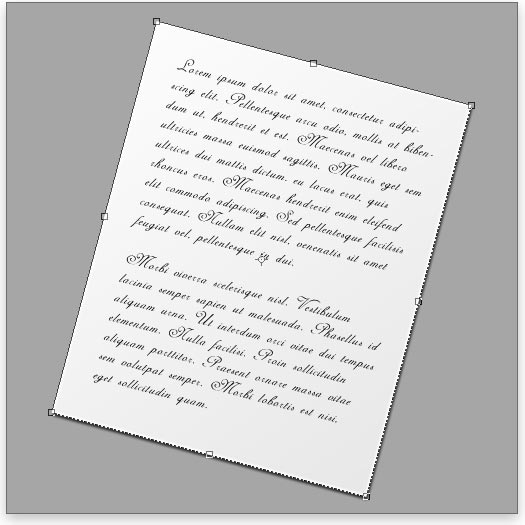 Lorem ipsum dolor sit amet, consectetur adipi-
scing elit. Pellentesque arcu odio, mollis at biben-
dum ut, hendrerit et est. Maecenas vel libero
ultricies massa euismod sagittis. Mauris eget sem
ultrices dui mattis dictum, eu lacus erat, quis
rhoncus eros. Maecenas hendrerit enim eleifend
elit commodo adipiscing. Sed pellentesque facilisis
consequat. Nullam elit nisl, venenatis sit amet
feugiat vel, pellentesque eu dui.
Morbi viverra scelerisque nisl. Vestibulum
lacinia semper sapien ut malesuada. Phasellus id
aliquam urna. Ut interdum orci vitae dui tempus
elementum. Nulla facilisi. Proin sollicitudin
aliquam porttitor. Praesent ornare massa vitae
sem volutpat semper. Morbi lobortis est nisi,
eget sollicitudin quam.